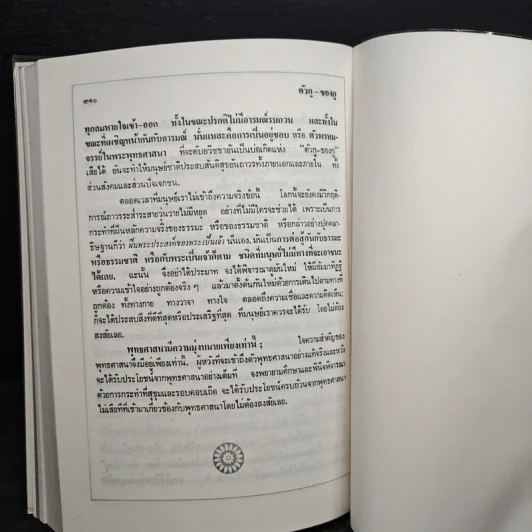 ๓๑๐ ตัวกู–ของกู
ทุกลมหายใจเข้า–ออก ทั้งในขณะปรกติไม่มีอารมณ์รบกวน และทั้งใน
ขณะที่เผชิญหน้ากันกับอารมณ์ นั่นแหละคือการเป็นอยู่ชอบ หรือ ตัวพรหม-
จรรย์ในพระพุทธศาสนา ที่จะดับอวิชชาอันเป็นบ่อเกิดแห่ง "ตัวกู–ของกู"
เสียได้ อันจะทำให้มนุษย์ชาติประสบสันติสุขอันถาวรทั้งภายนอกและภายใน ทั้ง
ส่วนสังคมและส่วนปัจเจกชน.
ตลอดเวลาที่มนุษย์เราไม่เข้าถึงความจริงข้อนี้ โลกนี้จะยังคงมีวิกฤติ-
การณ์ถาวรระส่ำระสายวุ่นวายไม่มีหยุด อย่างที่ไม่มีใครจะช่วยได้ เพราะเป็นการ
กระทำที่ฝืนหลักความจริงของธรรมะ หรือของธรรมชาติ หรือกล่าวอย่างปุคคลา-
ธิษฐานก็ว่า ฝืนพระประสงค์ของพระเป็นเจ้า นั่นเอง. มันเป็นการต่อสู้กันกับธรรมะ
หรือธรรมชาติ หรือกับพระเป็นเจ้าก็ตาม ชนิดที่มนุษย์ไม่มีทางที่จะเอาชนะ
ได้เลย. ฉะนั้น จึงอย่าได้ประมาท จงได้พิจารณาดูกันใหม่ ให้มีสัมมาทิฏฐิ
หรือความเข้าใจอย่างถูกต้องจริง ๆ แล้วมาตั้งต้นกันใหม่ด้วยการเดินไปตามทางที่
ถูกต้อง ทั้งทางกาย ทางวาจา ทางใจ ตลอดถึงความเชื่อและความคิดเห็น;
ก็จะได้ประสบสิ่งที่ดีที่สุดหรือประเสริฐที่สุด ที่มนุษย์เราควรจะได้รับ โดยไม่ต้อง
สงสัยเลย.
พุทธศาสนามีความมุ่งหมายเพียงเท่านี้; ใจความสำคัญของ
พุทธศาสนาจึงมีอยู่เพียงเท่านี้. ผู้หวังที่จะเข้าถึงตัวพุทธศาสนาอย่างแท้จริงและหวัง
จะได้รับประโยชน์จากพุทธศาสนาอย่างเต็มที่ จงพยายามศึกษาและพินิจพิจารณา
ด้วยการกระทำที่สุขุมและรอบคอบเถิด จะได้รับประโยชน์ครบถ้วนจากพุทธศาสนา
ไม่เสียทีที่เข้ามาเกี่ยวข้องกับพุทธศาสนาโดยไม่ต้องสงสัยเลย.